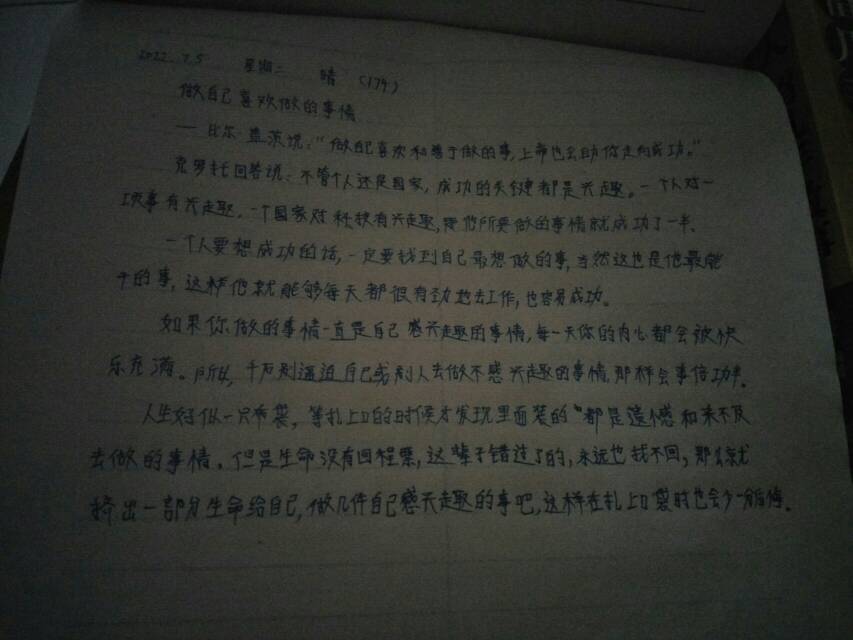 2022.7.5 星期二 晴 (179)
做自己喜欢做的事情
——比尔·盖茨说:“做自己喜欢和善于做的事,上帝也会助你走向成功。”
克罗托回答说:不管个人还是国家,成功的关键都是兴趣。一个人对一
项事有兴趣,一个国家对科技有兴趣,那他所要做的事情就成功了一半。
一个人要想成功的话,一定要找到自己最想做的事,当然这也是他最能
干的事,这样他就能够每天都很有劲地去工作,也容易成功。
如果你做的事情一直是自己感兴趣的事情,每一天你的内心都会被快
乐充满。所以,千万别逼迫自己或别人去做不感兴趣的事情,那样会事倍功半。
人生好似一只布袋,等扎上口的时候才发现里面装的“都是遗憾和来不及
去做的事情。但是生命没有回程票,这辈子错过了的,永远也找不回,那么就
挤出一部分生命给自己,做几件自己感兴趣的事吧,这样在扎上口袋时也会少一分后悔。